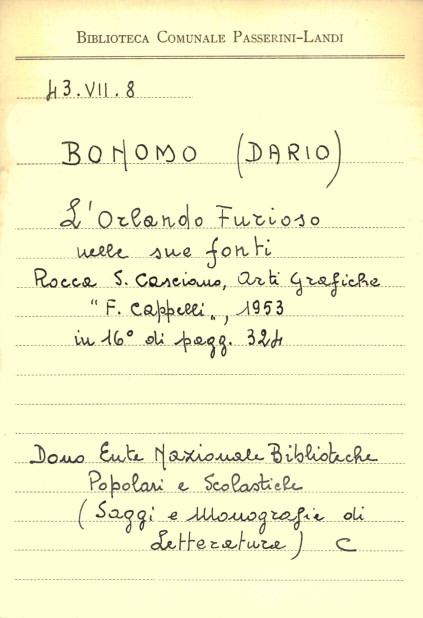 BIBLIOTECA COMUNALE PASSERINI-LANDI
43.VII.8
BONOMO (DARIO)
L'Orlando Furioso
nelle sue fonti
Rocca S. Casciano, Arti Grafiche
"F. Cappelli„, 1953
in 16° di pagg. 324
Dono Ente Nazionale Biblioteche
Popolari e Scolastiche
(Saggi e Monografie di
Letteratura) C